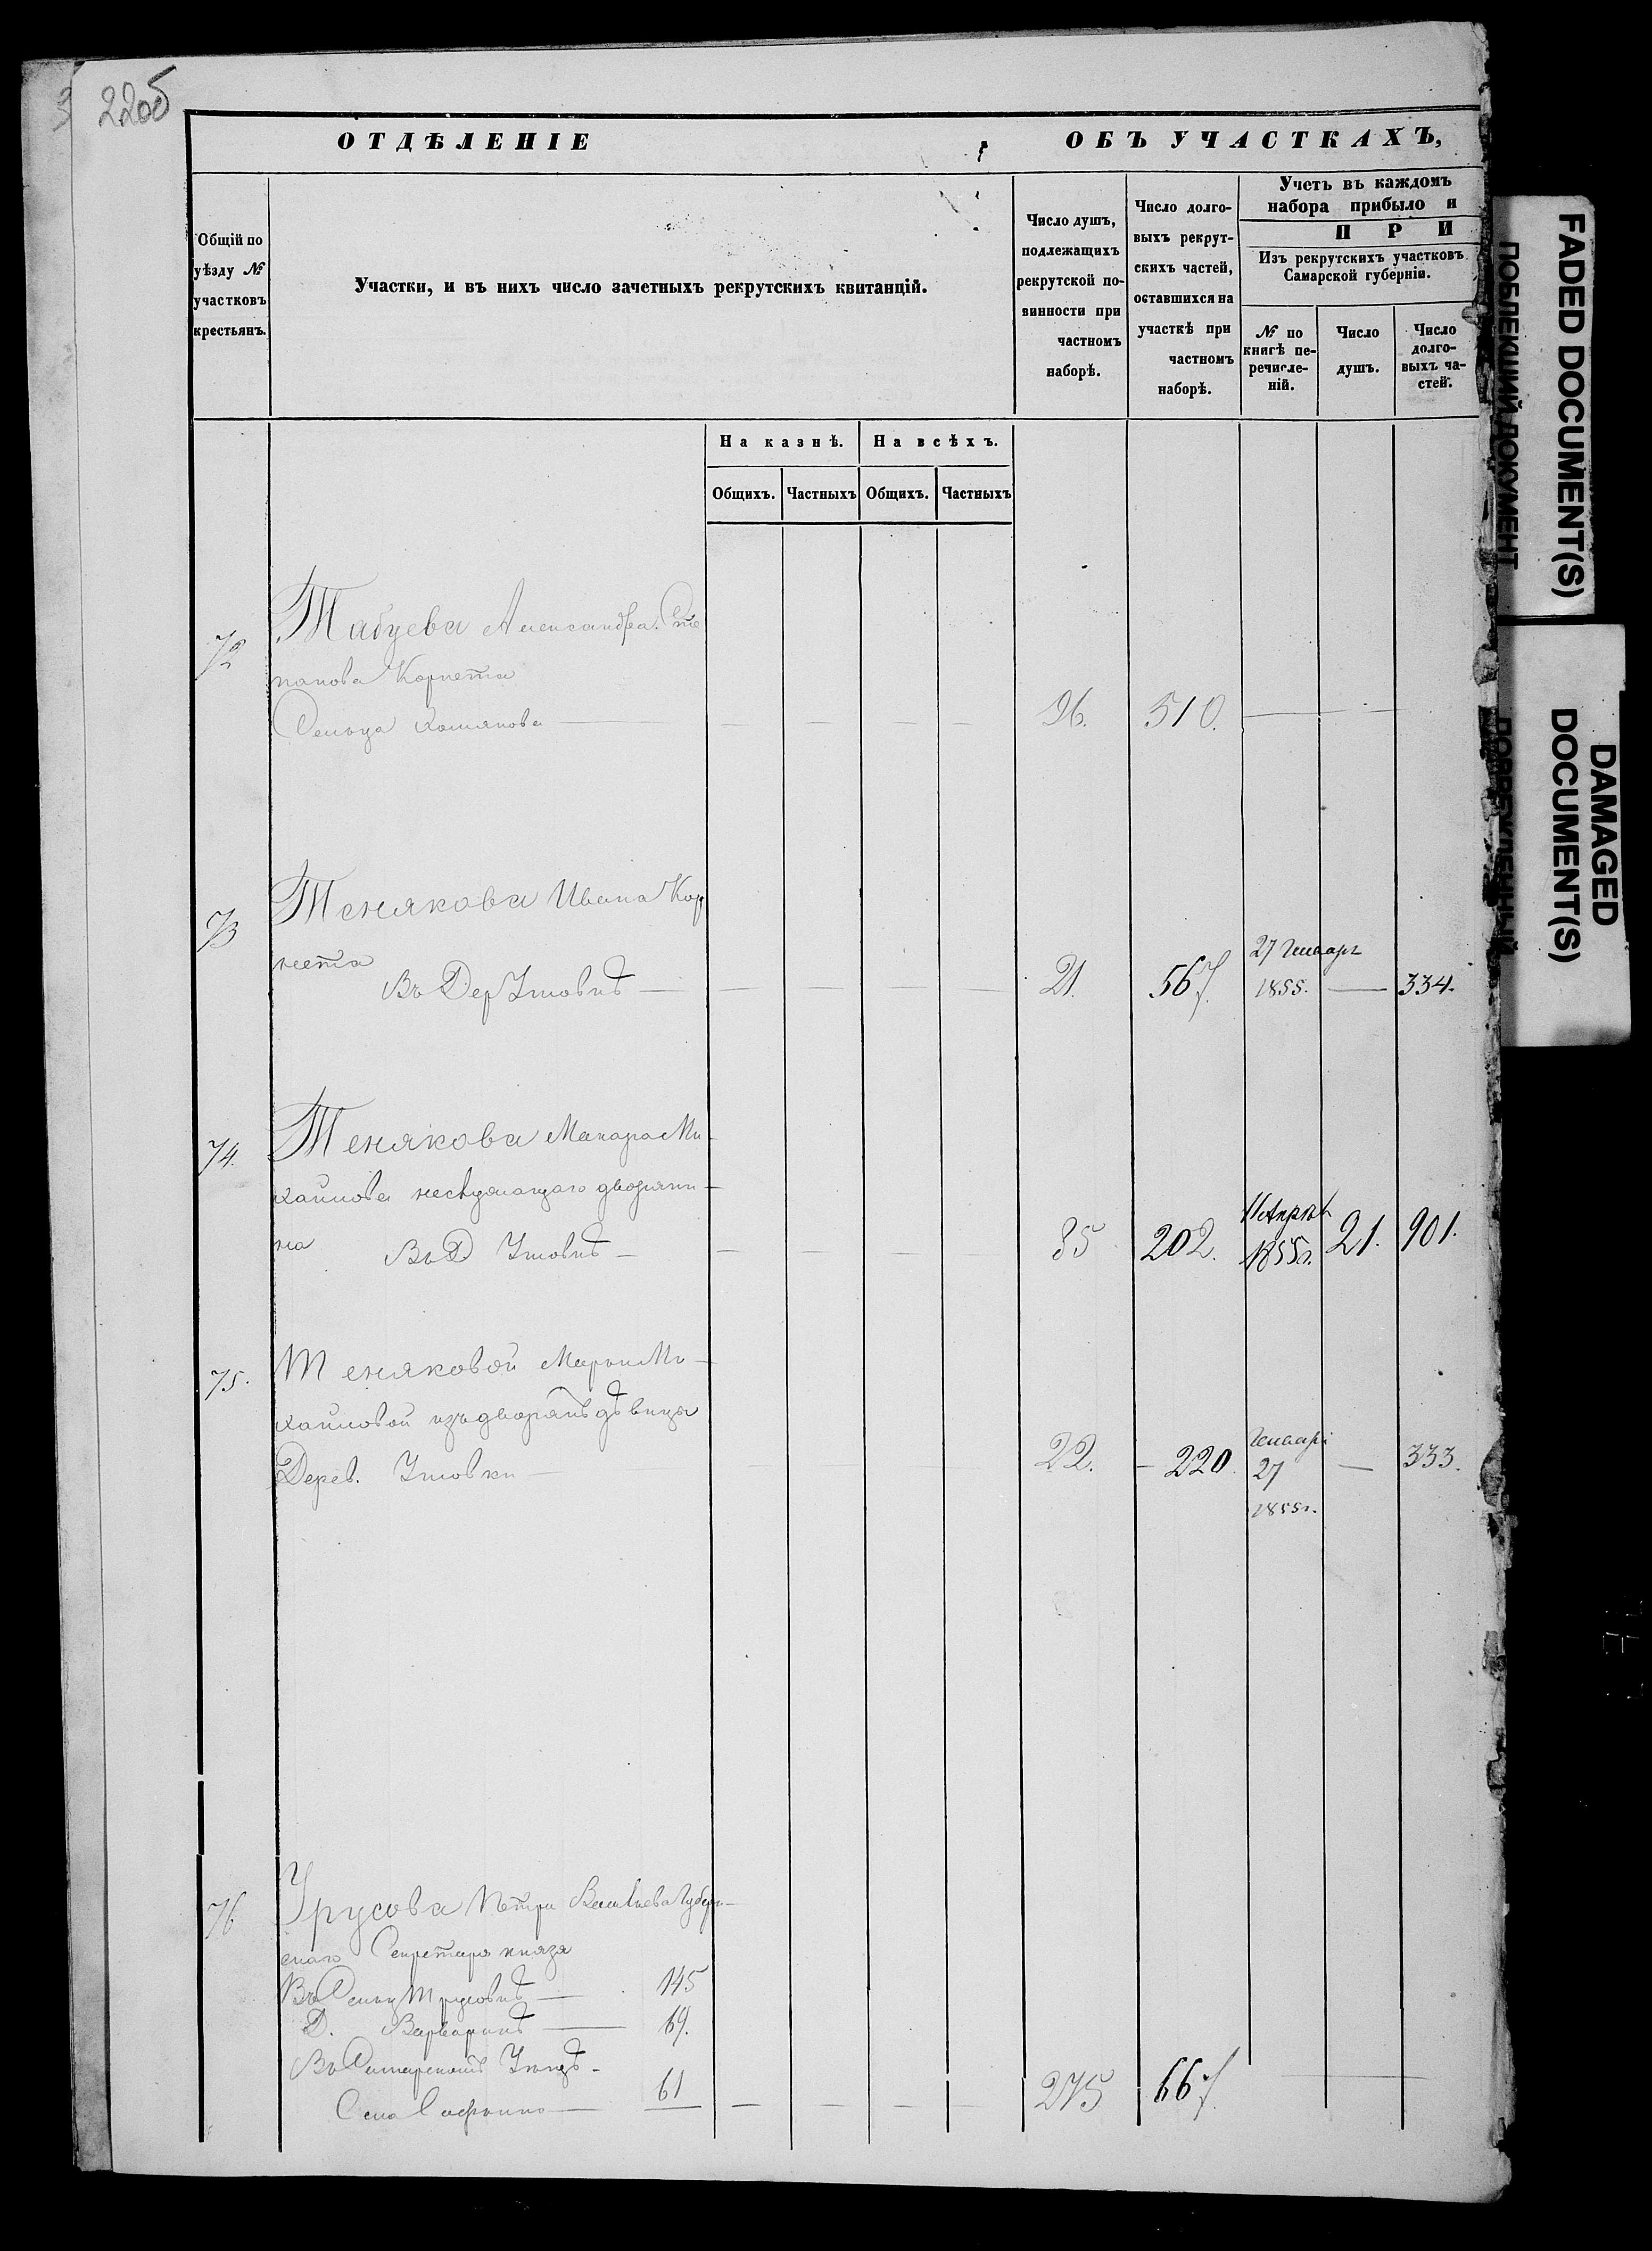 22об
ОТДѢЛЕНІЕ ОБЪ УЧАСТКАХЪ,
Общій по уѣзду № участковъ крестьянъ.
Участки, и въ нихъ число зачетныхъ рекрутскихъ квитанцій.
Число душъ, подлежащихъ рекрутской повинности при частномъ наборѣ.
Число долговыхъ рекрутскихъ частей, оставшихся на участкѣ при частномъ наборѣ.
Учетъ въ каждомъ
набора прибыло и
ПРИ
Изъ рекрутскихъ участковъ
Самарской губерніи.
№ по книгѣ перечисленій.
Число душъ.
Число долговыхъ частей.
На казнѣ. На всѣхъ.
Общихъ. Частныхъ Общихъ. Частныхъ
72 Табуева Александра Сте
панова Корнета
Сельца 96. 510.
73 Тенякова Ивана Кор
нета 27 Генваря
Въ Дер Уловкѣ 21. 567. 1855. — 334.
74. Тенякова Макара Ми-
хайлова неслужащаго дворяни-
на Въ Д Уловкѣ 85 202. 11 Апрѣл 1855г. 21. 901.
75. Теняковой Марьи Ми-
хайловой изъ дворянъ дѣвицы
Дерев. Уловки 22. 220. Генваря 27 1855г. — 333.
76 Урусова Петра Васильева Губерн-
скаго Секретаря князя
Въ Сельцѣ 145
Д. Варваринѣ 69.
Въ Самарскомъ Уѣздѣ
Села 61 275 667.
FADED DOCUMENT(S)
ПОБЛЕКШИЙ ДОКУМЕНТ
DAMAGED DOCUMENT(S)
ПОВРЕЖДЕННЫЙ